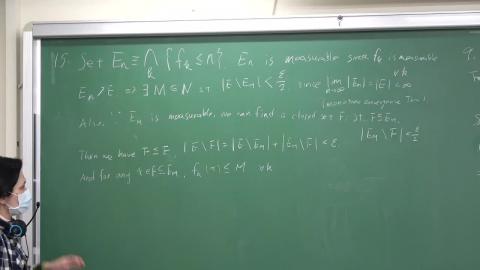 15. Set Eₙ ≡ ⋂ₖ {fₖ ≤ n}. Eₙ is measurable since fₖ is measurable ∀k
Eₙ ↗ E ⇒ ∃ M ∈ N st |E \ Eₘ| < ε/2, since lim n→∞ |Eₙ| = |E| < ∞
(monotone convergence Thm)
Also, ∵ Eₘ is measurable, we can find a closed set F. st. F ⊆ Eₘ, |Eₘ \ F| < ε/2
Then we have F ⊆ E, |E \ F| = |E \ Eₘ| + |Eₘ \ F| < ε.
And for any x ∈ F ⊆ Eₘ, fₖ(x) ≤ M ∀k
9.